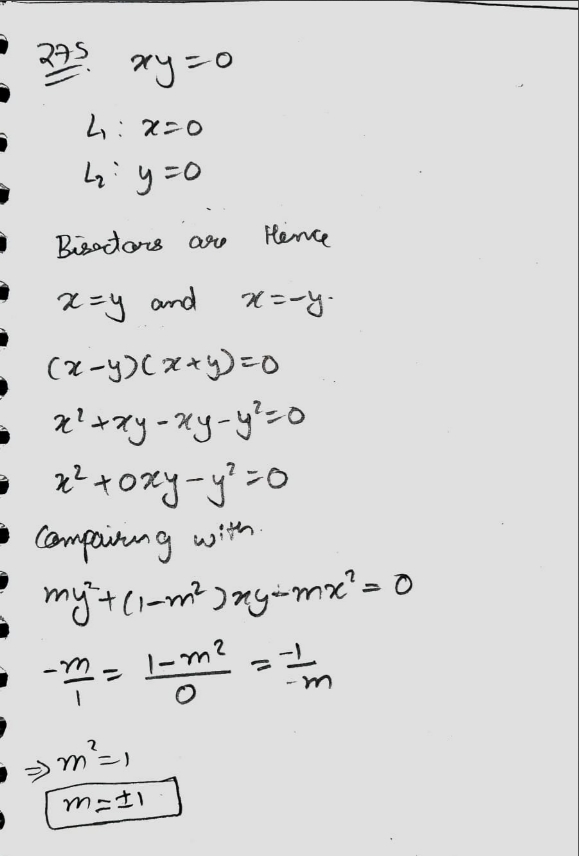 275. xy=0
L₁: x=0
L₂: y=0
Bisectors are Hence
x=y and x=-y.
(x-y)(x+y)=0
x²+xy-xy-y²=0
x²+0xy-y²=0
Compairing with.
my²+(1-m²)xy-mx²=0
-m/1 = (1-m²)/0 = -1/-m
⇒ m²=1
m=±1